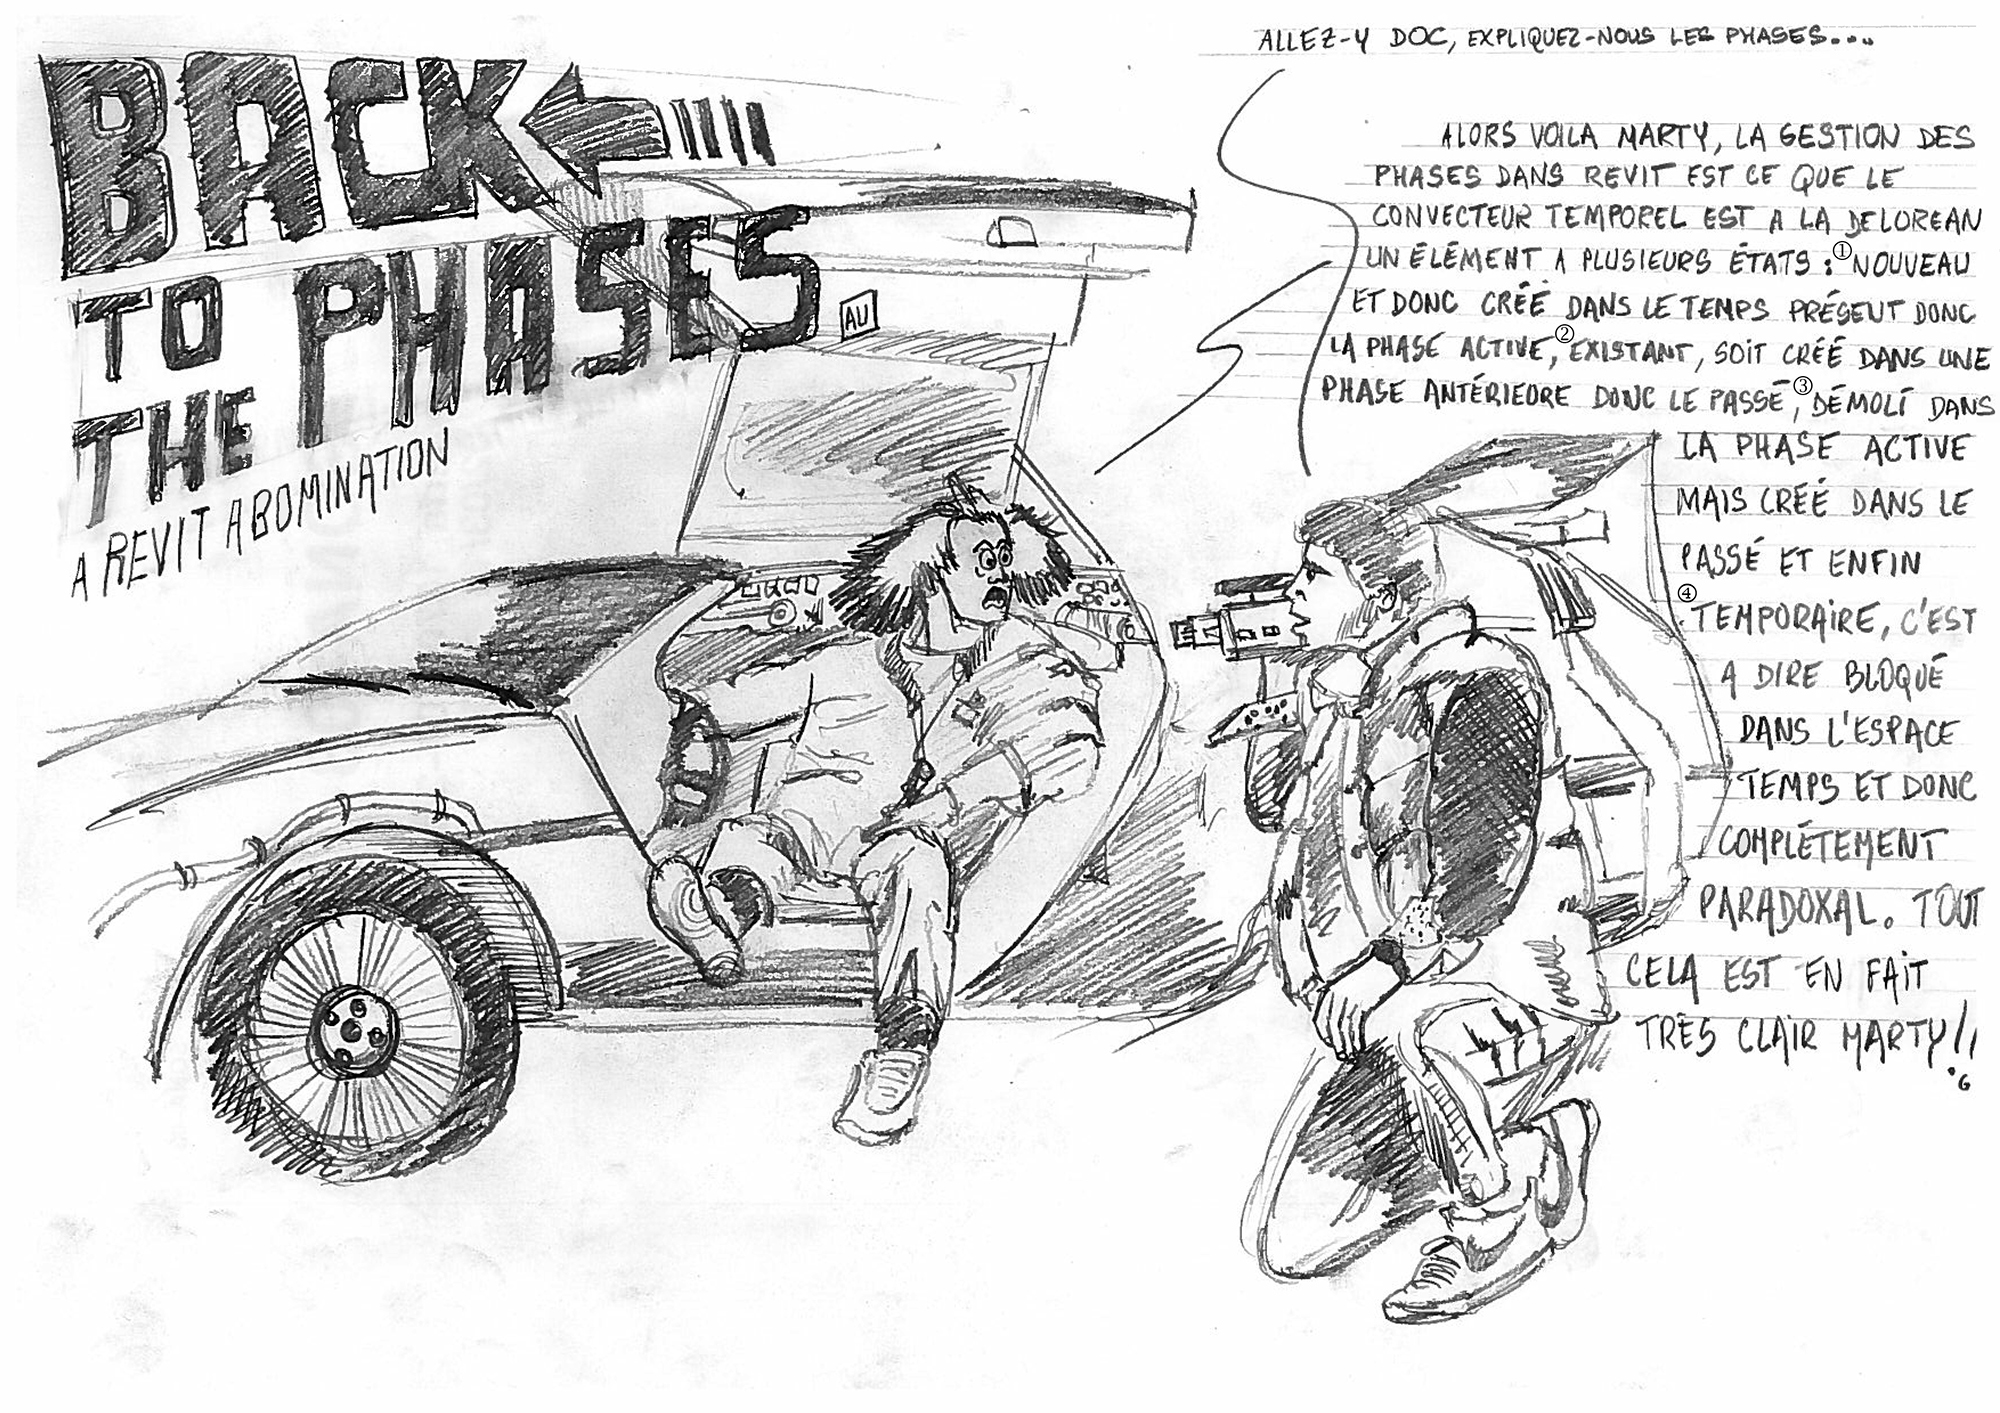 BACK
TO THE PHASES
AU
A REVIT ABOMINATION
ALLEZ-Y DOC, EXPLIQUEZ-NOUS LES PHASES....
ALORS VOILA MARTY, LA GESTION DES
PHASES DANS REVIT EST CE QUE LE
CONVECTEUR TEMPOREL EST A LA DELOREAN
UN ÉLÉMENT A PLUSIEURS ÉTATS : ① NOUVEAU
ET DONC CRÉÉ DANS LE TEMPS PRÉSEUT DONC
LA PHASE ACTIVE, ② EXISTANT, SOIT CRÉÉ DANS UNE
PHASE ANTÉRIEORE DONC LE PASSÉ, ③ DÉMOLI DANS
LA PHASE ACTIVE
MAIS CRÉÉ DANS LE
PASSÉ ET ENFIN
④ TEMPORAIRE, C'EST
A DIRE BLOQUÉ
DANS L'ESPACE
TEMPS ET DONC
COMPLÉTEMENT
PARADOXAL. TOUT
CELA EST EN FAIT
TRÈS CLAIR MARTY!!